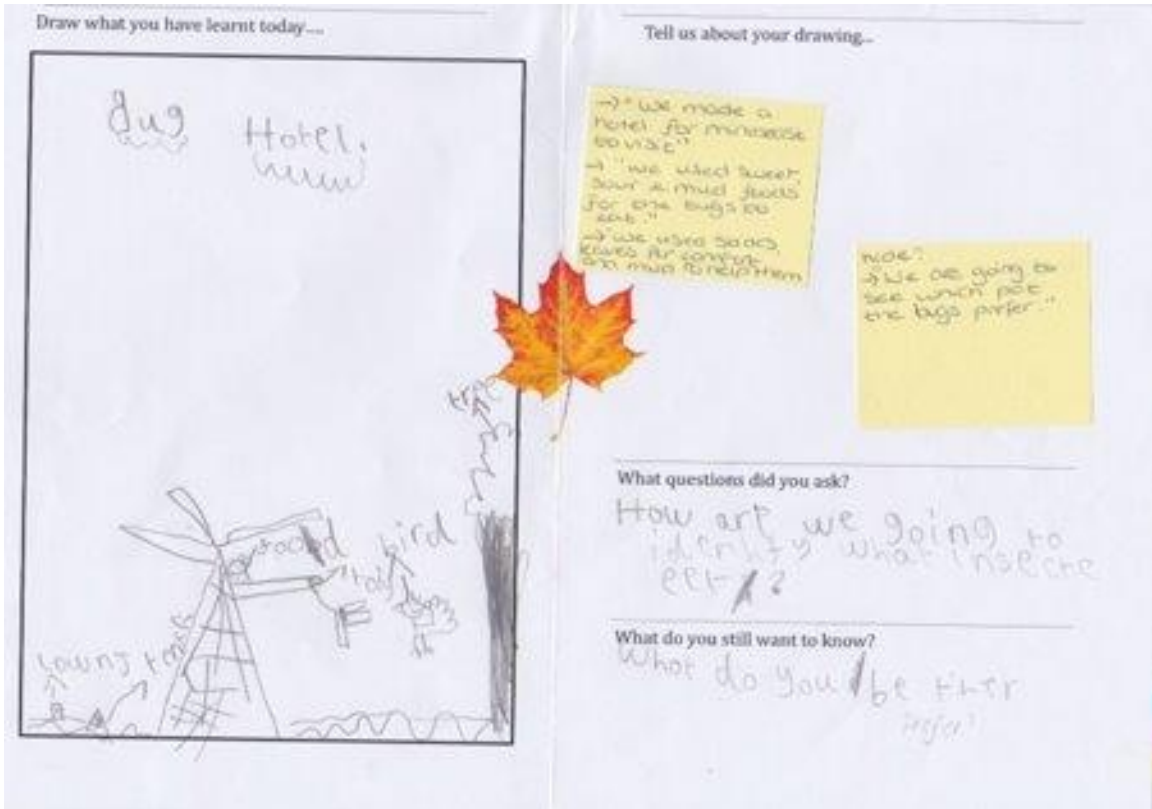 Draw what you have learnt today....
Bug Hotel.
tree
bird
Tell us about your drawing...
→ "We made a
hotel for minibeast
to visit"
→ "we used sweet,
sour & mud foods
for the bugs to
eat."
→ "We used sticks,
leaves for comfort
and mud to help them
hide"
→ We are going to
see which pot
the bugs prefer."
What questions did you ask?
How are we going to
identify what insecte
eet?
What do you still want to know?
What do you be ther